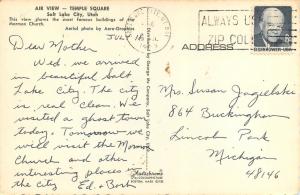 AIR VIEW - TEMPLE SQUARE
Salt Lake City, Utah
This view shows the most famous buildings of the
Mormon Church.
Aerial photo by Aero-Graphics
JULY 18
Dear Mother
Wed. we arrived
in beautiful Salt
Lake City. The city
is real clean. We
visited a ghost town
today. Tomorrow we
will visit the Mormon
Church and other
interesting places in
the city Ed. & Barb
Distributed by George Mc Company, Salt Lake City
ALWAYS U
ZIP COD
EISENHOWER·USA
ADDRESS
Mrs. Susan Jagielski
864 Buckingham
Lincoln Park
Michigan
48146